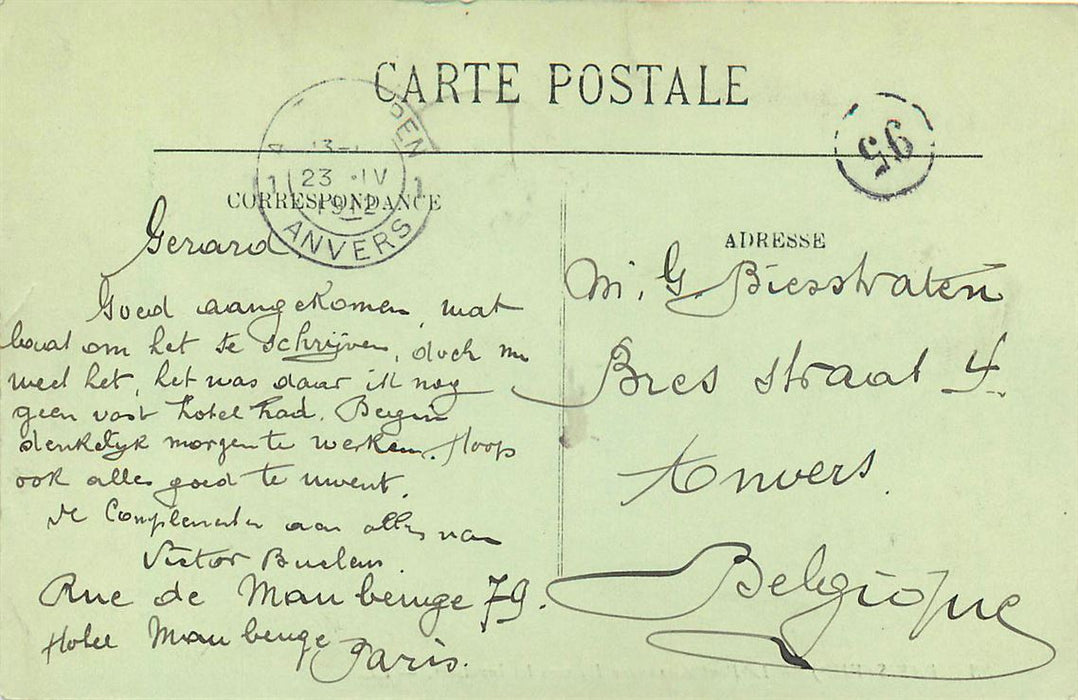 CARTE POSTALE
PEN
23 IV
1912
1 1
ANVERS
56
CORRESPONDANCE
Gerard,
Goed aangekomen, wat
laat om het te schrijven, doch
weet het, het was daar ik nog
geen vast hotel had. Begin
denkelijk morgen te werken. Hoop
ook alles goed te uwent.
de Complimenten aan alles van
Victor Buelens.
Rue de Maubeuge 79.
Hotel Maubeuge
Paris.
ADRESSE
M. G. Biesstraten
Bres straat 4.
Anvers.
Belgique